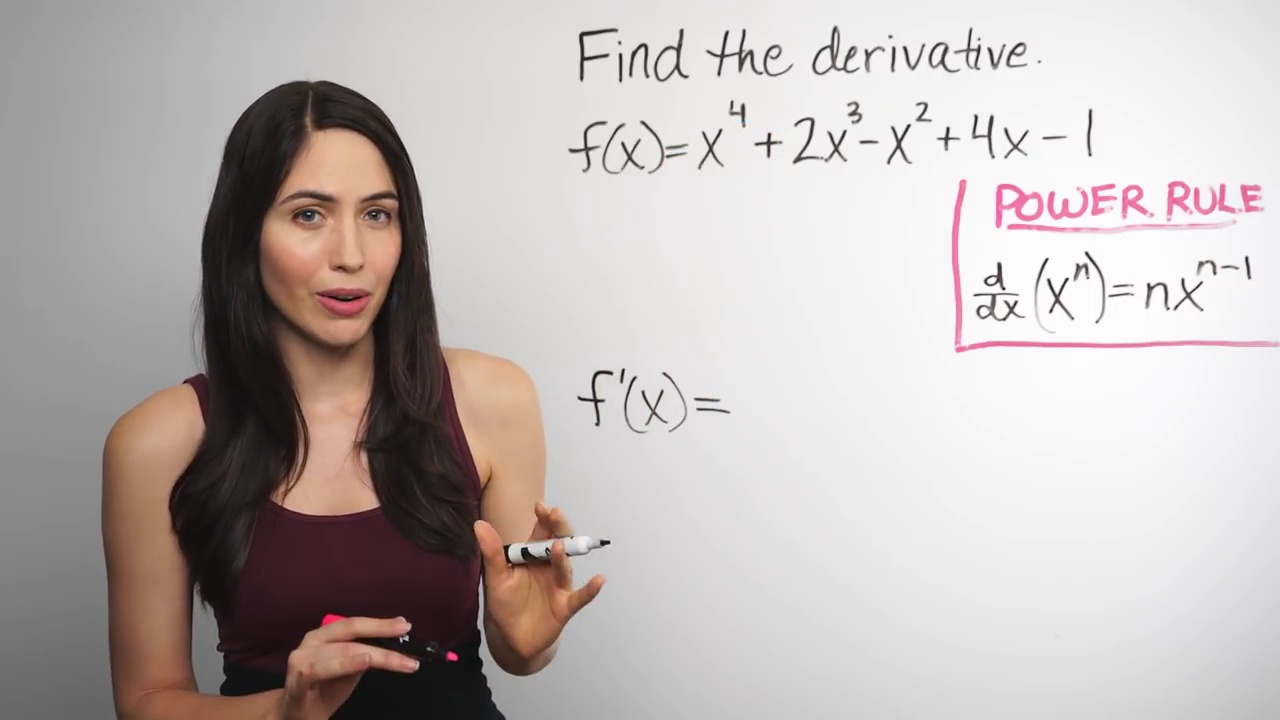 Find the derivative.
f(x)=x⁴+2x³-x²+4x-1
POWER RULE
d/dx(xⁿ)=nxⁿ⁻¹
f'(x)=